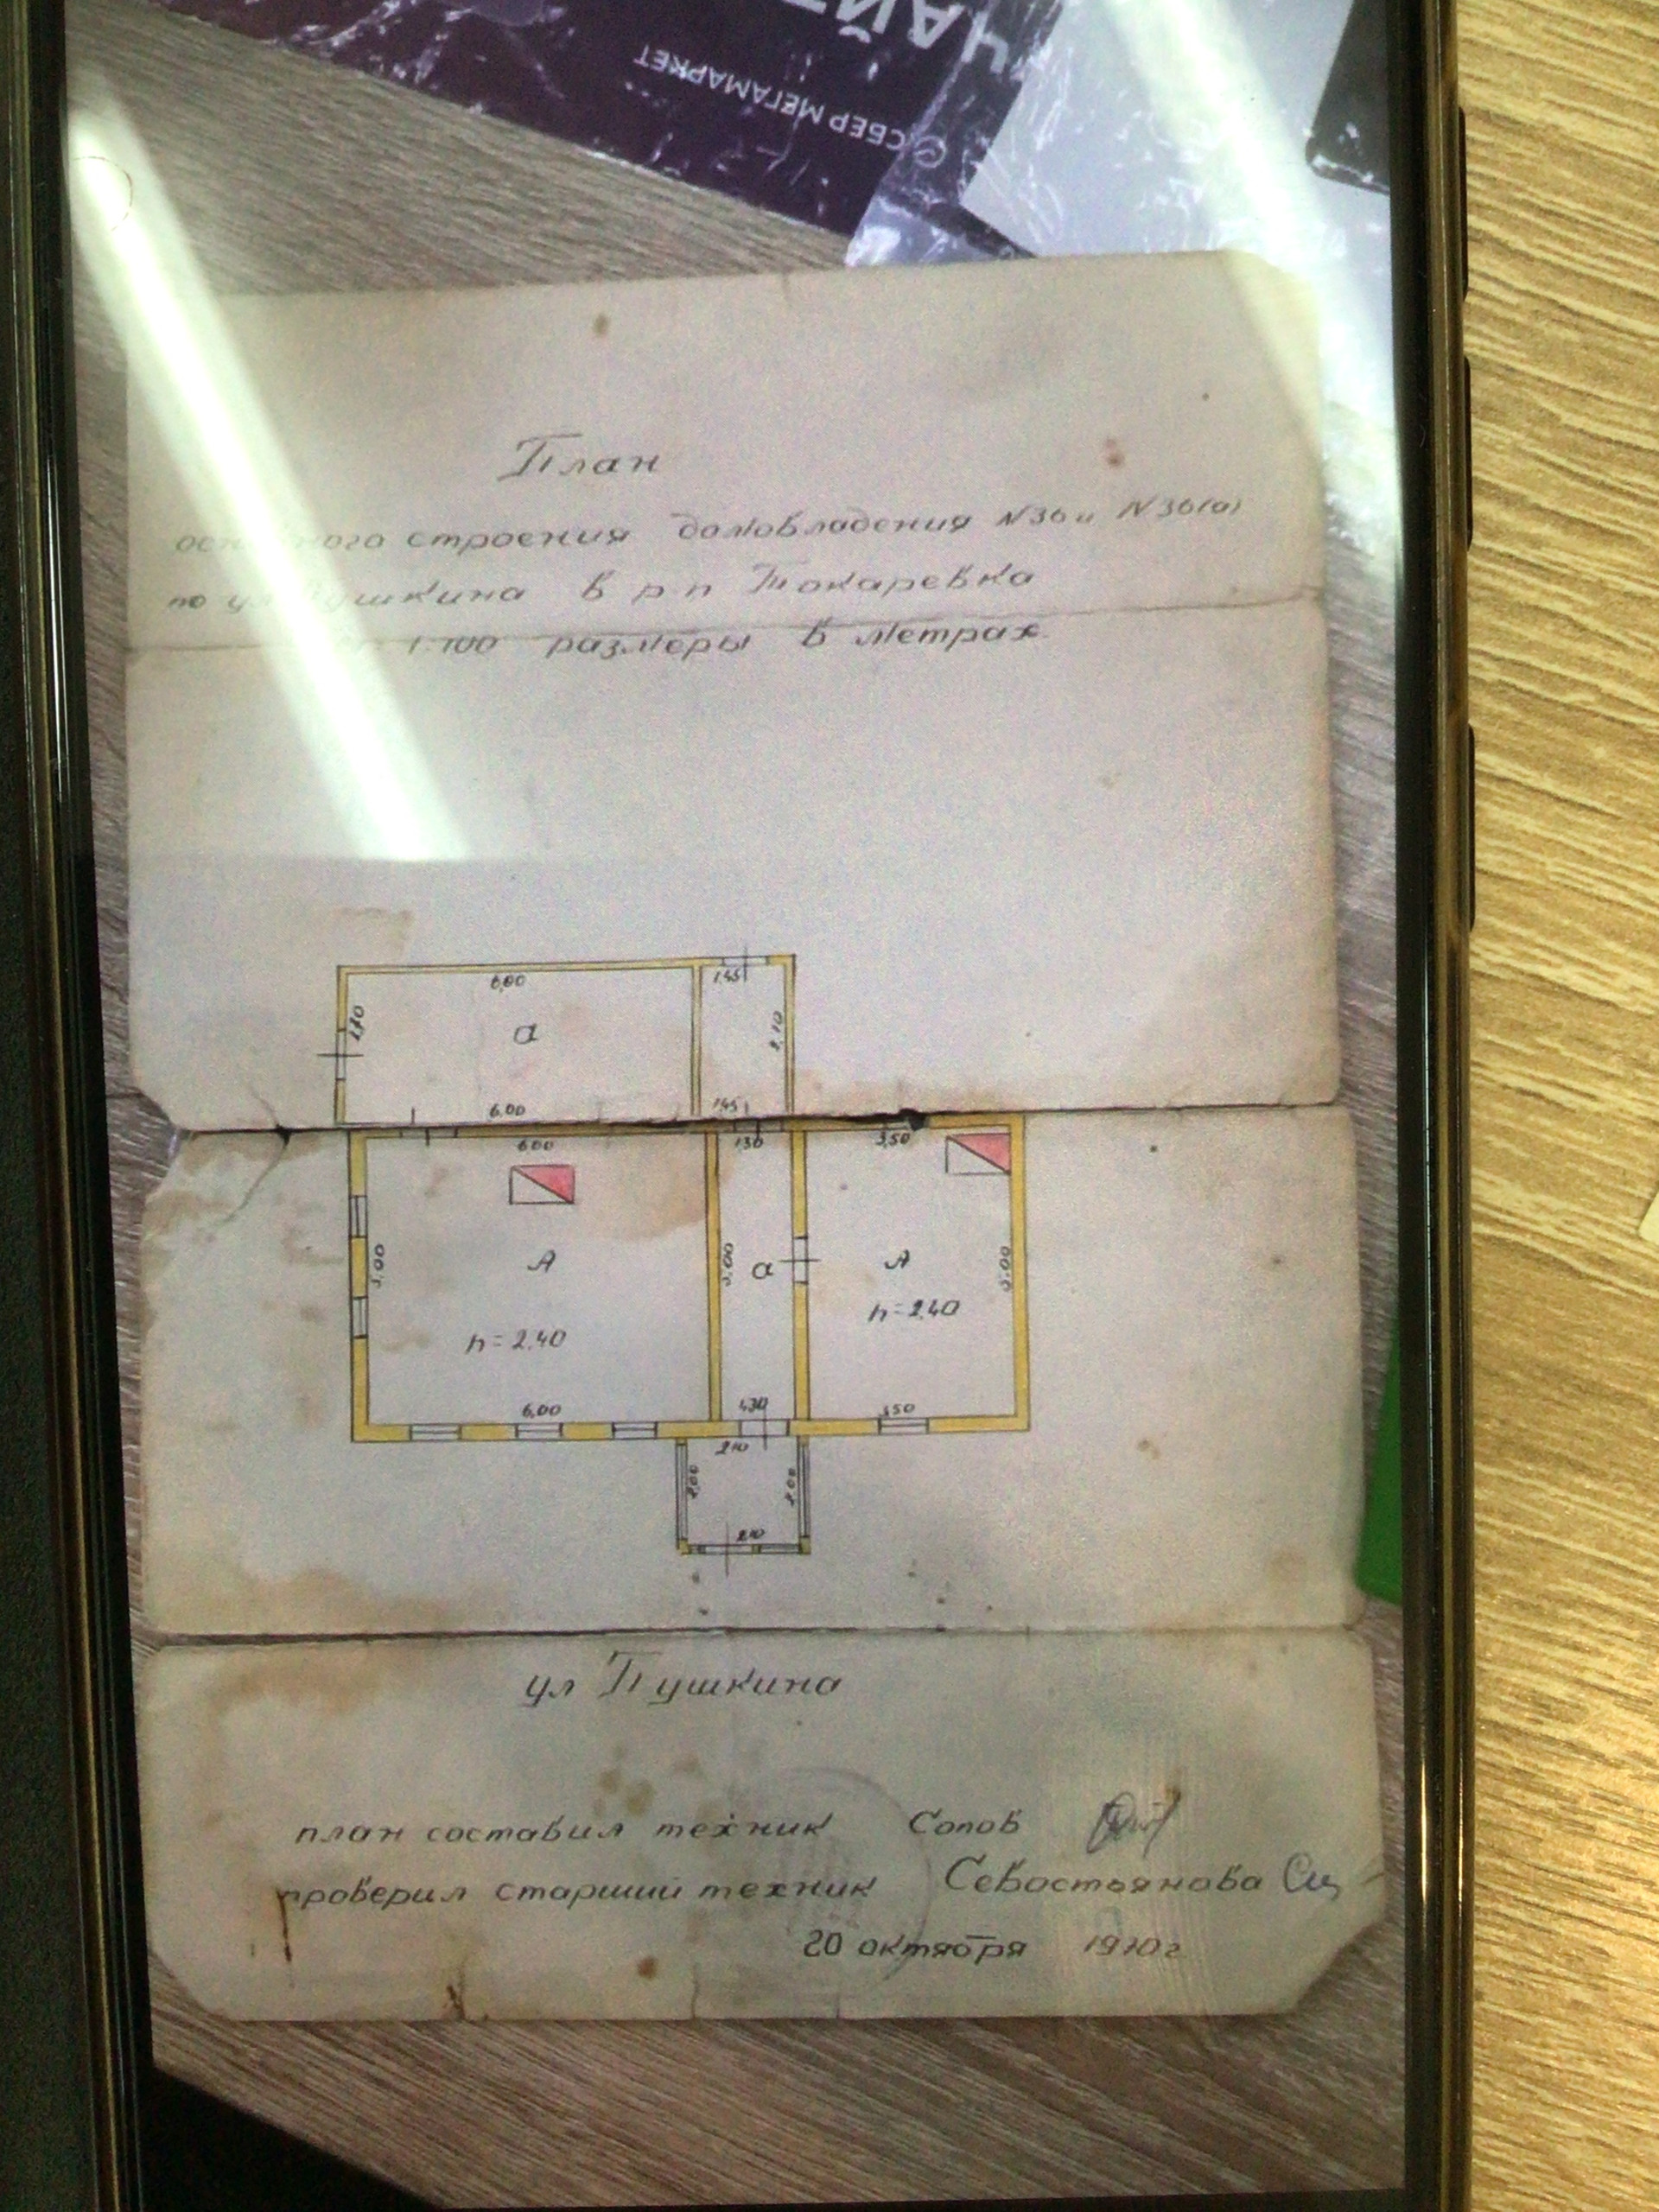 ЧАЙТ
СБЕР МЕГАМАРКЕТ
План
основного строения домовладения N36 и N36(а)
по ул Пушкина в р п Токаревка
1:100 размеры в метрах
6,00 1,45
а 2,10
6,00 1,45
6,00 1,30 3,50
5,00 А 5,00 а А 5,00
h=2,40 h=2,40
6,00 1,30 3,50
2,10
2,00 2,00
2,10
ул Пушкина
план составил техник Сопов
проверил старший техник Севостьянова
20 октября